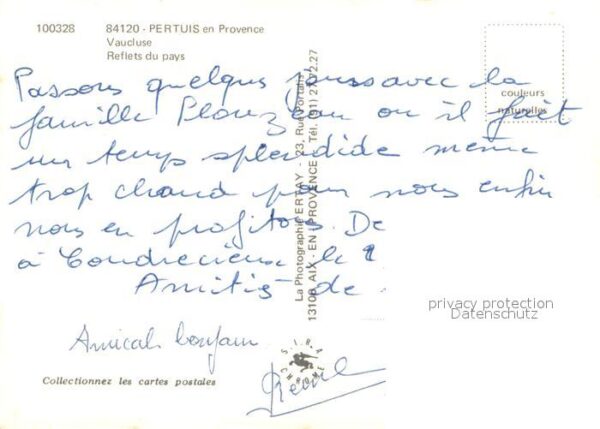 100328 84120 - PERTUIS en Provence
Vaucluse
Reflets du pays
couleurs
naturelles
Passons quelques jours avec la
famille Plouzeau ou il fait
un temps splendide même
trop chaud pour nous enfin
nous en profitons. De
à le
Amitiés de
Amical bonjour
René
La Photographie ERTAY - 23, Rue Portalis
13100 AIX - EN - PROVENCE - Tél. (91) 27.02.27
privacy protection
Datenschutz
Collectionnez les cartes postales